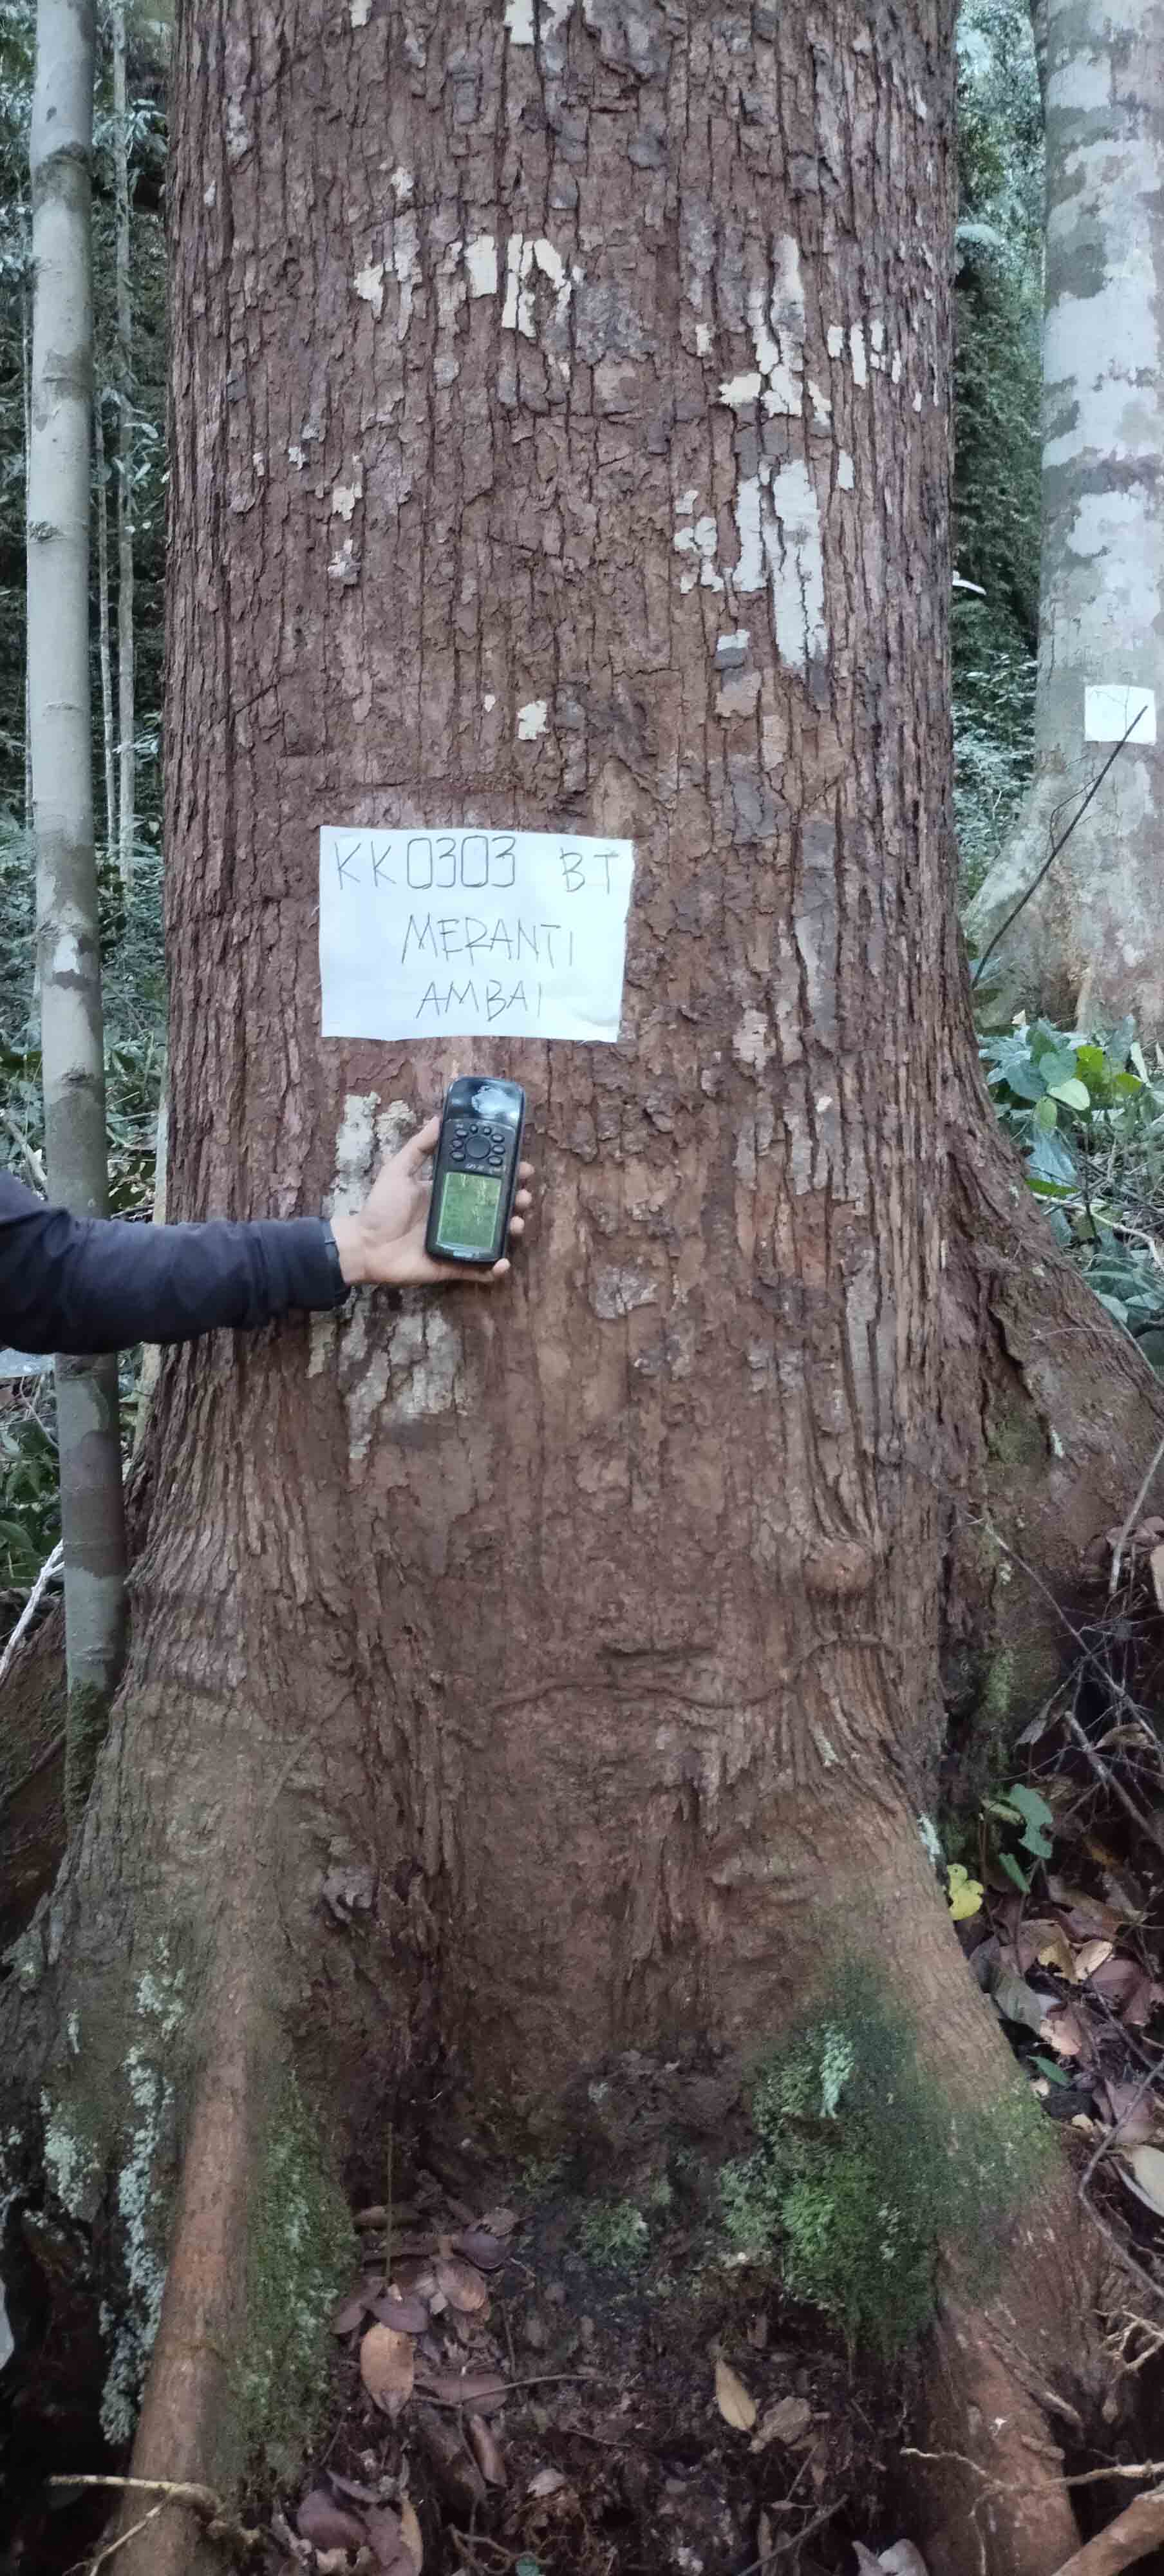 KK0303 BT
MERANTI
AMBAI